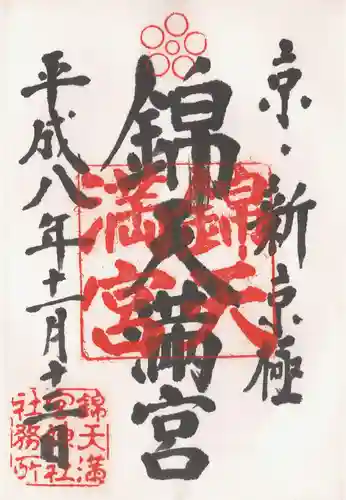 京・新京極
錦天満宮
平成八年十一月十三日
錦天
満宮
錦天満
宮神社
社務所